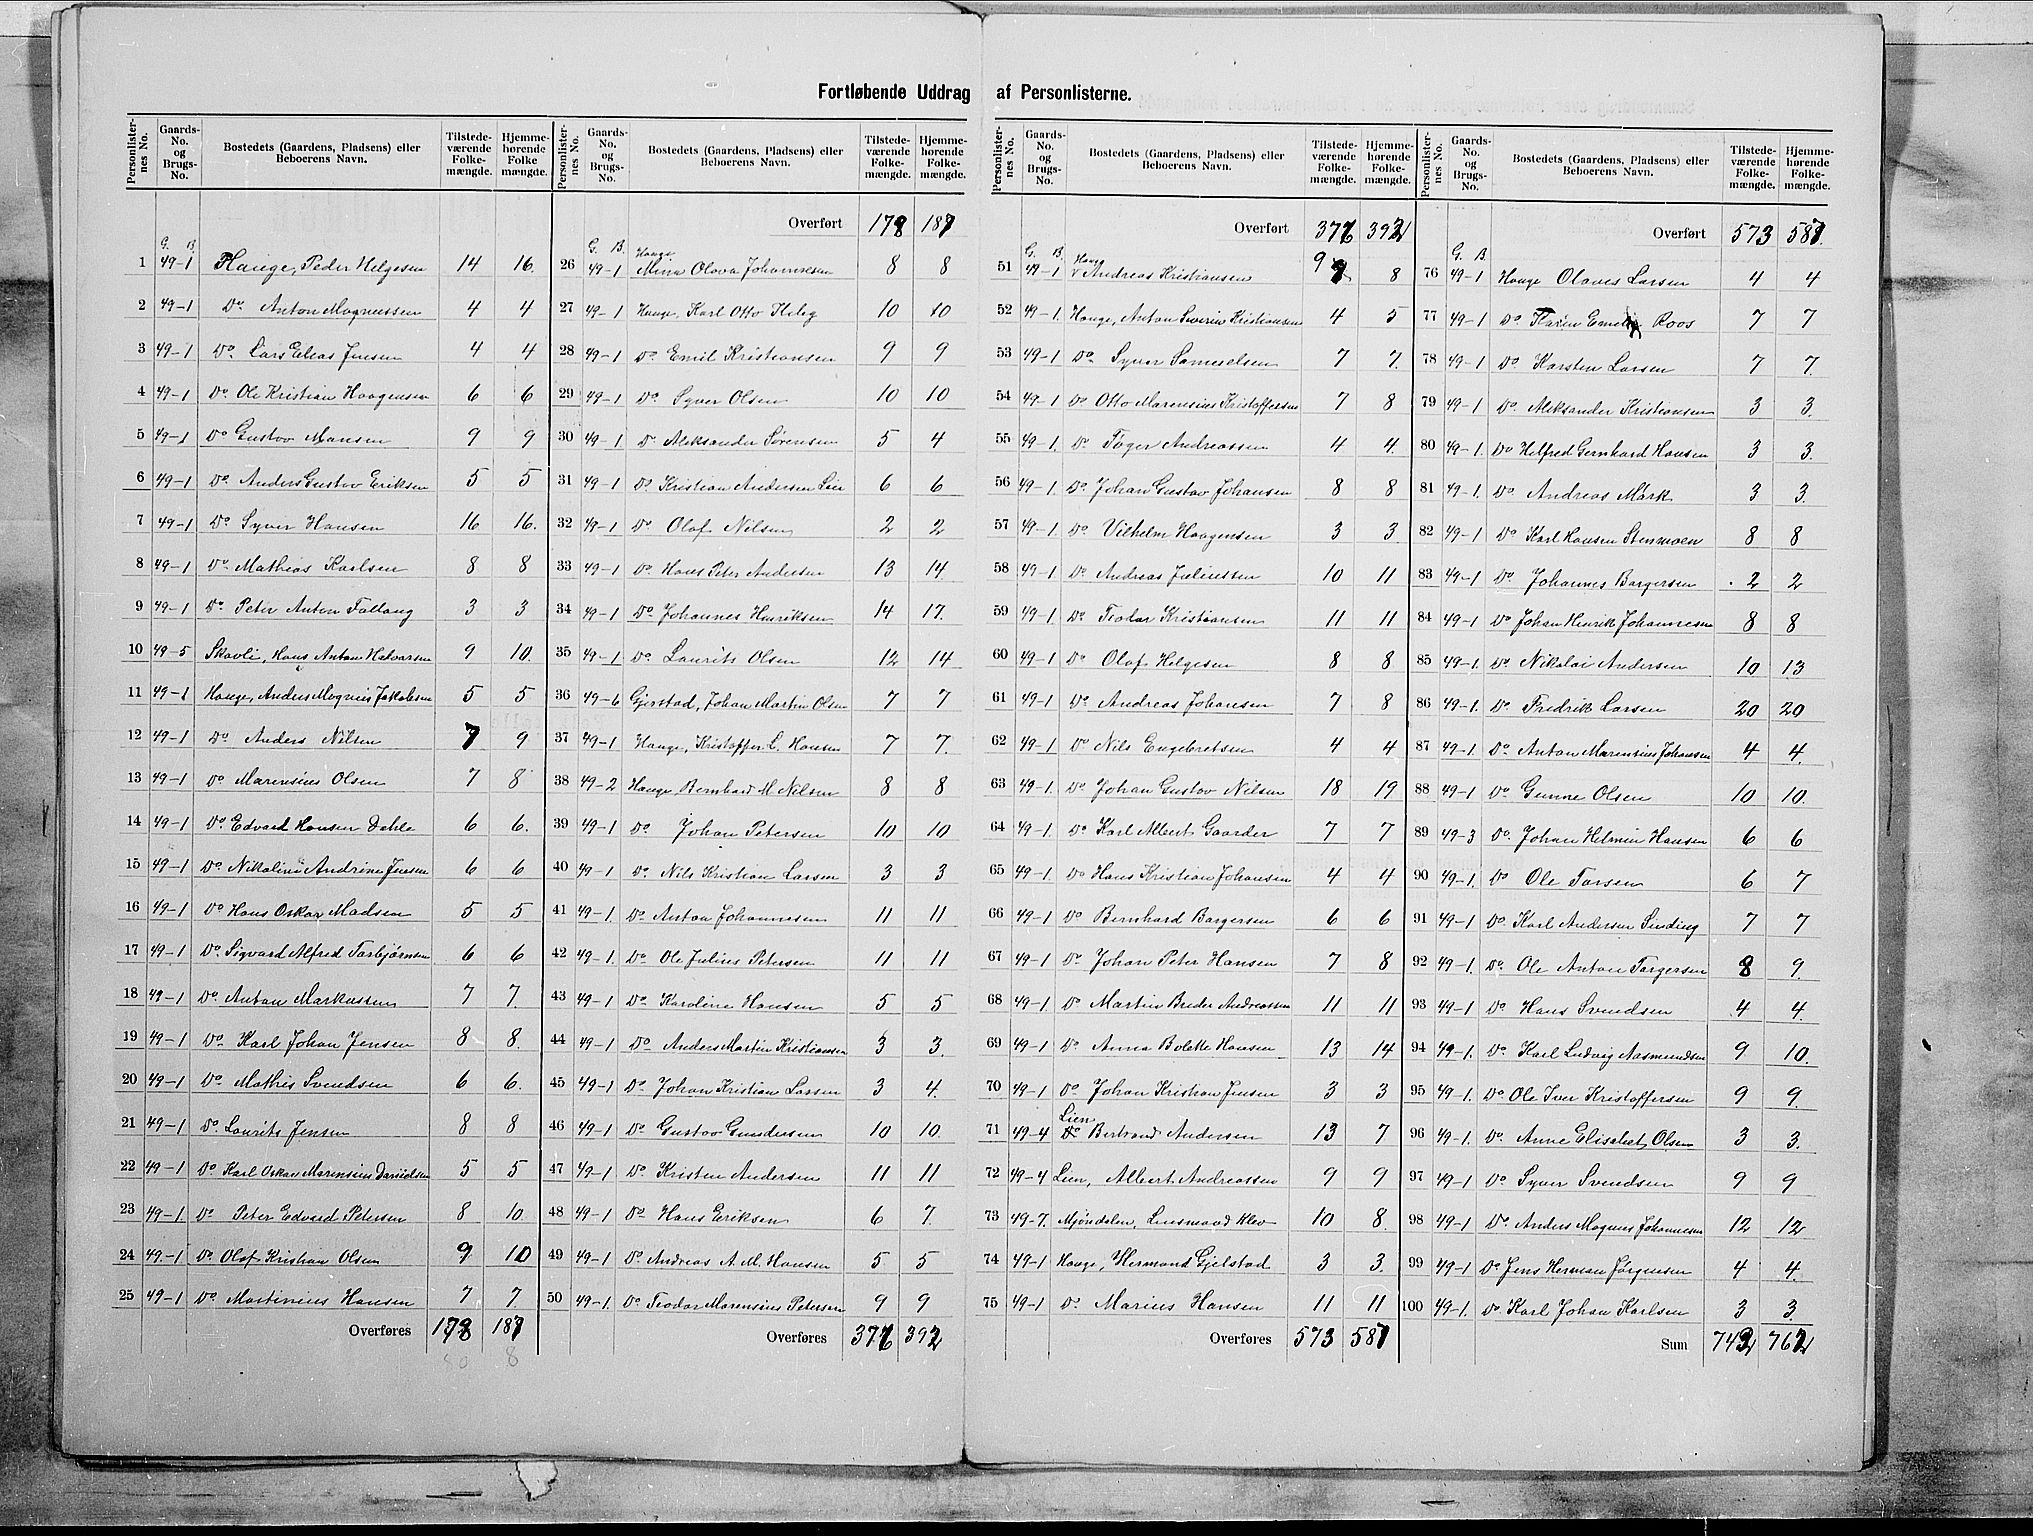 Fortløbende Uddrag af Personlisterne.
Personlister-nes No. Gaards-No. og Brugs-No. Bostedets (Gaardens, Pladsens) eller Beboerens Navn. Tilstede-værende Folke-mængde. Hjemme-hørende Folke mængde.
G. B.
1 49-1 Hauge, Peder Helgesen 14 16.
2 49-1 Do Anton Magnussen 4 4
3 49-1 Do Lars Elias Jensen 4 4
4 49-1 Do Ole Kristian Haagensen 6 6
5 49-1 Do Gustav Monsen 9 9
6 49-1 Do Anders Gustav Eriksen 5 5
7 49-1 Do Syver Hansen 16 16.
8 49-1 Do Mathias Karlsen 8 8
9 49-1 Do Peter Anton Fallang 3 3
10 49-5 Skavli, Hans Anton Halvorsen 9 10.
11 49-1 Hauge, Anders Magnus Jakobsen 5 5
12 49-1 Do Anders Nilsen 7 9
13 49-1 Do Marensius Olsen 7 8
14 49-1 Do Edvard Hansen Dahle 6 6.
15 49-1 Do Nikoline Andrine Jensen 6 6
16 49-1 Do Hans Oskar Madsen 5 5
17 49-1 Do Sigvard Alfred Torbjørnsen 6 6
18 49-1 Do Anton Markussen 7 7.
19 49-1 Do Karl Johan Jensen 8 8.
20 49-1 Do Mathis Svendsen 6 6.
21 49-1 Do Laurits Jensen 8 8
22 49-1 Do Karl Oskar Marensius Danielsen 5 5
23 49-1 Do Peter Edvard Petersen 8 10.
24 49-1 Do Olaf Kristian Olsen 9 10
25 49-1 Do Martinius Hansen 7 7
Overføres 178 187
80 8
Personlister-nes No. Gaards-No. og Brugs-No. Bostedets (Gaardens, Pladsens) eller Beboerens Navn. Tilstede-værende Folke-mængde. Hjemme-hørende Folke-mængde.
Overført 178 187
G. B. Hauge
26 49-1 Mina Olava Johannesen 8 8
27 49-1 Hauge, Karl Otto 10 10
28 49-1 Do Emil Kristiansen 9 9
29 49-1 Do Syver Olsen 10 10
30 49-1 Do Aleksander Sørensen 5 4
31 49-1 Do Kristian Andersen Lier 6 6
32 49-1 Do Olaf Nilsen 2 2
33 49-1 Do Hans Peter Andersen 13 14.
34 49-1 Do Johannes Henriksen 14 17.
35 49-1 Do Laurits Olsen 12 14
36 49-6 Gjerstad, Johan Martin Olsen 7 7
37 49-1 Hauge, Kristoffer L. Hansen 7 7.
38 49-2 Hauge Bernhard M Nilsen 8 8
39 49-1 Do Johan Petersen 10 10
40 49-1 Do Nils Kristian Larsen 3 3
41 49-1. Do Anton Johannesen 11 11
42 49-1. Do Ole Julius Petersen 11 11
43 49-1 Do Karoline Hansen 5 5
44 49-1 Do Anders Martin Kristiansen 3 3.
45 49-1 Do Johan Kristian Larsen 3 4.
46 49-1 Do Gustav Gundersen 10 10.
47 49-1 Do Kristen Andersen 11 11
48 49-1 Do Hans Eriksen 6 7.
49 49-1 Do Andreas A. M. Hansen 5 5
50 49-1. Do Teodor Marensius Petersen 9 9
Overføres 376 392
Personlister-nes No. Gaards-No. og Brugs-No. Bostedets (Gaardens, Pladsens) eller Beboerens Navn. Tilstede-værende Folke-mængde. Hjemme-hørende Folke-mængde.
Overført 376 392
G. B. Hauge
51 49-1 Andreas Kristiansen 9 8
52 49-1. Hauge, Anton Severin Kristiansen 4 5
53 49-1 Do Syver Samuelsen 7 7.
54 49-1 Do Otto Marensius Kristoffersen 7 8
55 49-1. Do Tøger Andreassen 4 4.
56 49-1. Do Johan Gustav Johansen 8 8
57 49-1. Do Vilhelm Haagensen 3 3.
58 49-1. Do Andreas Juliussen 10 11
59 49-1. Do Teodor Kristiansen 11 11
60 49-1 Do Olaf Helgesen 8 8
61 49-1 Do Andreas Johansen 7 8
62 49-1 Do Nils Engebretsen 4 4
63 49-1. Do Johan Gustav Nilsen 18 19
64 49-1. Do Karl Albert Gaarder 7 7
65 49-1. Do Hans Kristian Johansen 4 4
66 49-1 Do Bernhard Borgersen 6 6
67 49-1 Do Johan Peter Hansen 7 8
68 49-1. Do Martin Andreassen 11 11
69 49-1 Do Anna Bolette Hansen 13 14
70 49-1 Do Johan Kristian Jensen 3 3
Lien
71 49-4 Do Bertrand Andersen 13 7
72 49-4 Lien, Albert Andreassen 9 9
73 49-7. Mjøndalen, 10 8.
74 49-1 Hauge, Hermand Gjelstad 3 3.
75 49-1 Do Marius Hansen 11 11
Overføres 573 587
Personlister-nes No. Gaards-No. og Brugs-No. Bostedets (Gaardens, Pladsens) eller Beboerens Navn. Tilstede-værende Folke-mængde. Hjemme-hørende Folke-mængde.
Overført 573 587.
G. B
76 49-1 Hauge Olaves Larsen 4 4
77 49-1 Do Karen Roos 7 7
78 49-1 Do Karsten Larsen 7 7.
79 49-1 Do Aleksander Kristiansen 3 3.
80 49-1. Do Helfred Gernhard Hansen 3 3.
81 49-1. Do Andreas Mørk 3 3.
82 49-1 Do Karl Hansen Stenmoen 8 8
83 49-1 Do Johannes Borgersen 2 2
84 49-1 Do Johan Henrik Johannesen 8 8
85 49-1. Do Nikolai Andersen 10 13
86 49-1. Do Fredrik Larsen 20 20
87 49-1 Do Anton Marensius Johansen 4 4.
88 49-1 Do Gunne Olsen 10 10.
89 49-3 Do. Johan Helmin Hansen 6 6
90 49-1. Do Ole Torsen 6 7
91 49-1 Do Karl Andersen Sinding 7 7
92 49-1. Do. Ole Anton Torgersen 8 9.
93 49-1 Do Hans Svendsen 4 4.
94 49-1. Do. Karl Ludvig Aasmundsen 9 10.
95 49-1. Do Ole Iver Kristoffersen 9 9.
96 49-1. Do. Anne Elisabet Olsen 3 3.
97 49-1. Do Syver Svendsen 9 9
98 49-1 Do. Anders Magnus Johannesen 12 12
99 49-1 Do Jens Herman Jørgensen 4 4.
100 49-1. Do. Karl Johan Karlsen 3 3.
Sum 742 762